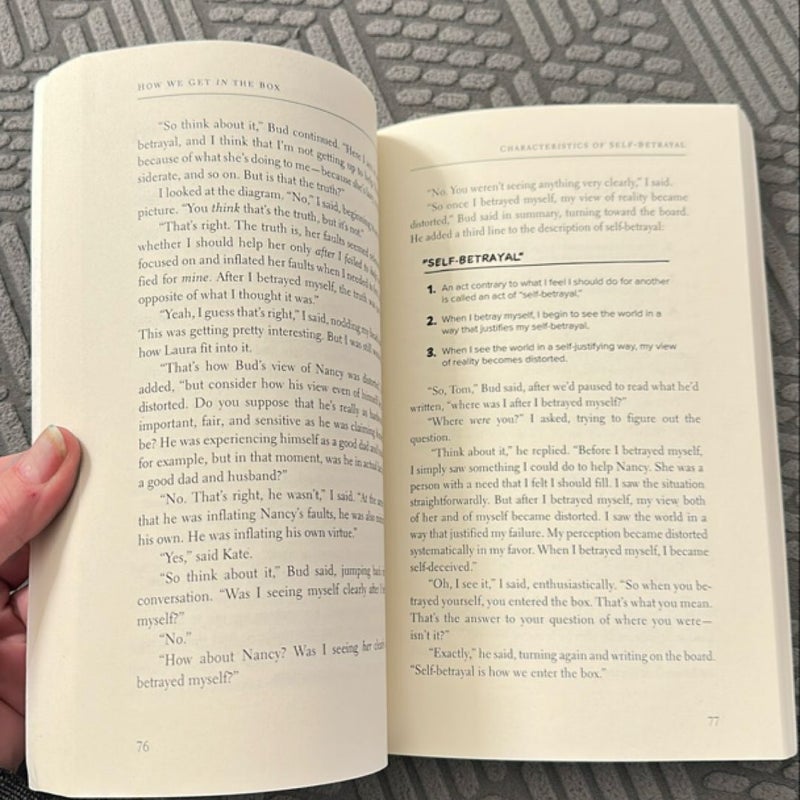 HOW WE GET IN THE BOX
"So think about it," Bud continued. "Here I
betrayal, and I think that I'm not getting up to
because of what she's doing to me—because she's
siderate, and so on. But is that the truth?"
I looked at the diagram. "No," I said, beginning
picture. "You think that's the truth, but it's not."
"That's right. The truth is, her faults seemed
whether I should help her only after I failed to
focused on and inflated her faults when I needed to
fied for mine. After I betrayed myself, the truth was
opposite of what I thought it was."
"Yeah, I guess that's right," I said, nodding my head
This was getting pretty interesting. But I was still
how Laura fit into it.
"That's how Bud's view of Nancy was distorted
added, "but consider how his view even of himself
distorted. Do you suppose that he's really as
important, fair, and sensitive as he was claiming
be? He was experiencing himself as a good dad and
for example, but in that moment, was he in actual
a good dad and husband?"
"No. That's right, he wasn't," I said. "At the
that he was inflating Nancy's faults, he was also
his own. He was inflating his own virtue."
"Yes," said Kate.
"So think about it," Bud said, jumping back
conversation. "Was I seeing myself clearly after I
myself?"
"No."
"How about Nancy? Was I seeing her
betrayed myself?"
76
CHARACTERISTICS OF SELF-BETRAYAL
"No. You weren't seeing anything very clearly," I said.
"So once I betrayed myself, my view of reality became
distorted," Bud said in summary, turning toward the board.
He added a third line to the description of self-betrayal:
"SELF-BETRAYAL"
1. An act contrary to what I feel I should do for another
is called an act of "self-betrayal."
2. When I betray myself, I begin to see the world in a
way that justifies my self-betrayal.
3. When I see the world in a self-justifying way, my view
of reality becomes distorted.
"So, Tom," Bud said, after we'd paused to read what he'd
written, "where was I after I betrayed myself?"
"Where were you?" I asked, trying to figure out the
question.
"Think about it," he replied. "Before I betrayed myself,
I simply saw something I could do to help Nancy. She was a
person with a need that I felt I should fill. I saw the situation
straightforwardly. But after I betrayed myself, my view both
of her and of myself became distorted. I saw the world in a
way that justified my failure. My perception became distorted
systematically in my favor. When I betrayed myself, I became
self-deceived."
"Oh, I see it," I said, enthusiastically. "So when you be-
trayed yourself, you entered the box. That's what you mean.
That's the answer to your question of where you were—
isn't it?"
"Exactly," he said, turning again and writing on the board.
"Self-betrayal is how we enter the box."
77